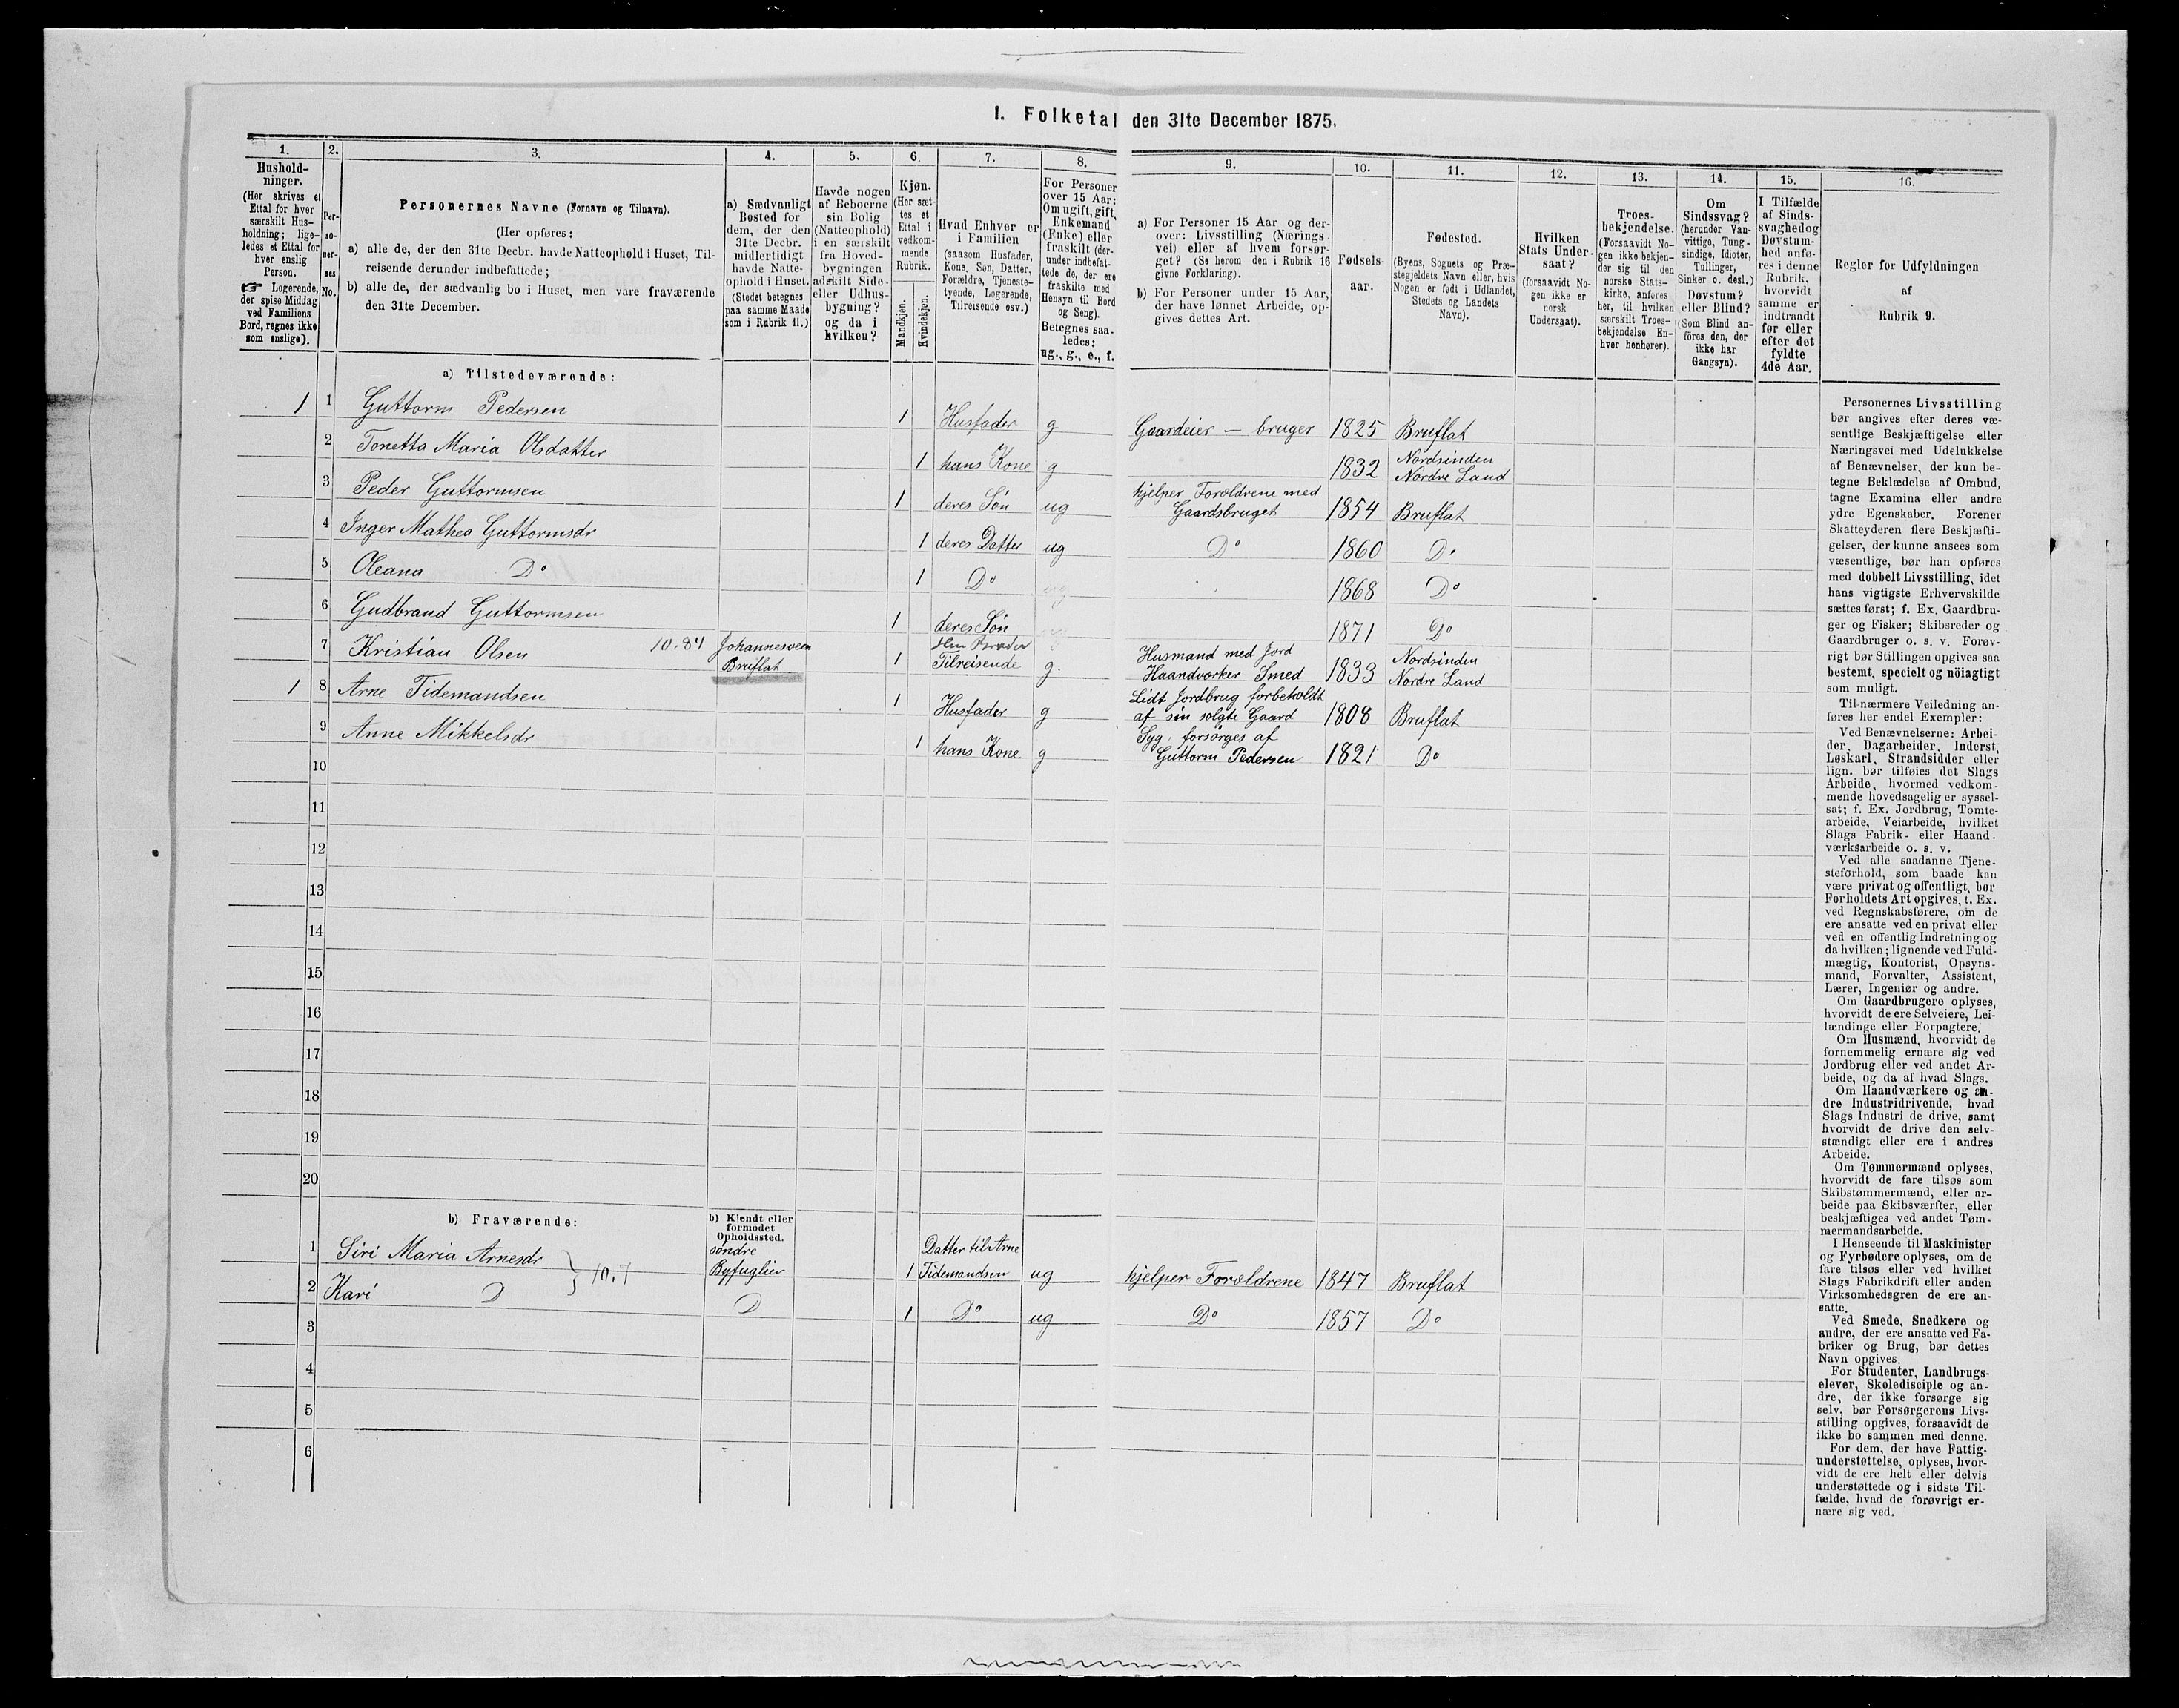 I. Folketal den 31te December 1875.
1.
Hushold-
ninger.
(Her skrives et
Ettal for hver
særskilt Hus-
holdning; lige-
ledes et Ettal for
hver enslig
Person.
☞ Logerende,
der spise Middag
ved Familiens
Bord, regnes ikke
som enslige).
2.
Per-
so-
ner-
nes
No.
3.
Personernes Navne (Fornavn og Tilnavn).
(Her opføres:
a) alle de, der den 31te Decbr. havde Natteophold i Huset, Til-
reisende derunder indbefattede;
b) alle de, der sædvanlig bo i Huset, men vare fraværende
den 31te December.
4.
a) Sædvanligt
Bosted for
dem, der den
31te Decbr.
midlertidigt
havde Natte-
ophold i Huset.
(Stedet betegnes
paa samme Maade
som i Rubrik 11.)
5.
Havde nogen
af Beboerne
sin Bolig
(Natteophold)
i en særskilt
fra Hoved-
bygningen
adskilt Side-
eller Udhus-
bygning?
og da i
hvilken?
6.
Kjøn.
(Her sæt-
tes et
Ettal i
vedkom-
mende
Rubrik.
Mandkjøn.
Kvindekjøn.
7.
Hvad Enhver er
i Familien
(saasom Husfader,
Kone, Søn, Datter,
Forældre, Tjeneste-
tyende, Logerende,
Tilreisende osv.)
8.
For Personer
over 15 Aar:
Om ugift, gift,
Enkemand
(Enke) eller
fraskilt (der-
under indbefat-
tede de, der ere
fraskilte med
Hensyn til Bord
og Seng).
Betegnes saa-
ledes:
ug., g., e., f.
9.
a) For Personer 15 Aar og der-
over: Livsstilling (Nærings-
vei) eller af hvem forsør-
get? (Se herom den i Rubrik 16
givne Forklaring).
b) For Personer under 15 Aar,
der have lønnet Arbeide, op-
gives dettes Art.
10.
Fødsels-
aar.
11.
Fødested.
(Byens, Sognets og Præ-
stegjeldets Navn eller, hvis
Nogen er født i Udlandet,
Stedets og Landets
Navn).
12.
Hvilken
Stats Under-
saat?
(forsaavidt No-
gen ikke er
norsk
Undersaat).
13.
Troes-
bekjendelse.
(Forsaavidt No-
gen ikke bekjen-
der sig til den
norske Stats-
kirke, anføres
her, til hvilken
særskilt Troes-
bekjendelse En-
hver henhører).
14.
Om
Sindssvag?
(herunder Van-
vittige, Tung-
sindige, Idioter,
Tullinger,
Sinker o. desl.)
Døvstum?
eller Blind?
(Som Blind an-
föres den, der
ikke har
Gangsyn).
15.
I Tilfælde
af Sinds-
svaghed og
Døvstum-
hed anfø-
res i denne
Rubrik,
hvorvidt
samme er
indtraadt
før eller
efter det
fyldte
4de Aar.
16.
Regler for Udfyldningen
af
Rubrik 9.
a) Tilstedeværende:
1 1 Guttorm Pedersen 1 Husfader g Gaardeier — bruger 1825 Bruflat
2 Tonetta Maria Olsdatter 1 hans Kone g 1832 Nordsinden
Nordre Land
3 Peder Guttormsen 1 deres Søn ug hjelper Forældrene med
Gaardsbruget 1854 Bruflat
4 Inger Mathea Guttormsdr 1 deres Datter ug Do 1860 Do
5 Oleana Do 1 Do 1868 Do
6 Gudbrand Guttormsen 1 deres Søn 1871 Do
7 Kristian Olsen 10.84 Johannesveen
Bruflat 1
Tilreisende g. Husmand med Jord
Haandværker Smed 1833 Nordsinden
Nordre Land
1 8 Arne Tidemandsen 1 Husfader g Lidt Jordbrug forbeholdt
af sin solgte Gaard 1808 Bruflat
9 Anne Mikkelsdr 1 hans Kone g Syg, forsørges af
Guttorm Pedersen 1821 Do
10
11
12
13
14
15
16
17
18
19
20
b) Fraværende:
b) Kjendt eller
formodet
Opholdssted.
1 Siri Maria Arnesdr } 10.7 søndre
Byfuglien 1 Datter til Arne
Tidemandsen ug hjelper Forældrene 1847 Bruflat
2 Kari D D 1 Do ug Do 1857 Do
3
4
5
6
Personernes Livsstilling
bør angives efter deres væ-
sentlige Beskjæftigelse eller
Næringsvei med Udelukkelse
af Benævnelser, der kun be-
tegne Beklædelse af Ombud,
tagne Examina eller andre
ydre Egenskaber. Forener
Skatteyderen flere Beskjæfti-
gelser, der kunne ansees som
væsentlige, bør han opføres
med dobbelt Livsstilling, idet
hans vigtigste Erhvervskilde
sættes først; f. Ex. Gaardbru-
ger og Fisker; Skibsreder og
Gaardbruger o. s. v. Forøv-
rigt bør Stillingen opgives saa
bestemt, specielt og nöiagtigt
som muligt.
Til nærmere Veiledning an-
føres her endel Exempler:
Ved Benævnelserne: Arbei-
der, Dagarbeider, Inderst,
Løskarl, Strandsidder eller
lign. bør tilføies det Slags
Arbeide, hvormed vedkom-
mende hovedsagelig er syssel-
sat; f. Ex. Jordbrug, Tomte-
arbeide, Veiarbeide, hvilket
Slags Fabrik- eller Haand-
værksarbeide o. s. v.
Ved alle saadanne Tjene-
steforhold, som baade kan
være privat og offentligt, bør
Forholdets Art opgives, t. Ex.
ved Regnskabsførere, om de
ere ansatte ved en privat eller
ved en offentlig Indretning og
da hvilken; lignende ved Fuld-
mægtig, Kontorist, Opsyns-
mand, Forvalter, Assistent,
Lærer, Ingeniør og andre.
Om Gaardbrugere oplyses,
hvorvidt de ere Selveiere, Lei-
lændinge eller Forpagtere.
Om Husmænd, hvorvidt de
fornemmelig ernære sig ved
Jordbrug eller ved andet Ar-
beide, og da af hvad Slags.
Om Haandværkere og an-
dre Industridrivende, hvad
Slags Industri de drive, samt
hvorvidt de drive den selv-
stændigt eller ere i andres
Arbeide.
Om Tømmermænd oplyses,
hvorvidt de fare tilsøs som
Skibstømmermænd, eller ar-
beide paa Skibsværfter, eller
beskjæftiges ved andet Tøm-
mermandsarbeide.
I Henseende til Maskinister
og Fyrbødere oplyses, om de
fare tilsøs eller ved hvilket
Slags Fabrikdrift eller anden
Virksomhedsgren de ere an-
satte.
Ved Smede, Snedkere og
andre, der ere ansatte ved Fa-
briker og Brug, bør dettes
Navn opgives.
For Studenter, Landbrugs-
elever, Skoledisciple og an-
dre, der ikke forsørge sig
selv, bør Forsørgerens Livs-
stilling opgives, forsaavidt de
ikke bo sammen med denne.
For dem, der have Fattig-
understøttelse, oplyses, hvor-
vidt de ere helt eller delvis
understøttede og i sidste Til-
fælde, hvad de forøvrigt er-
nære sig ved.